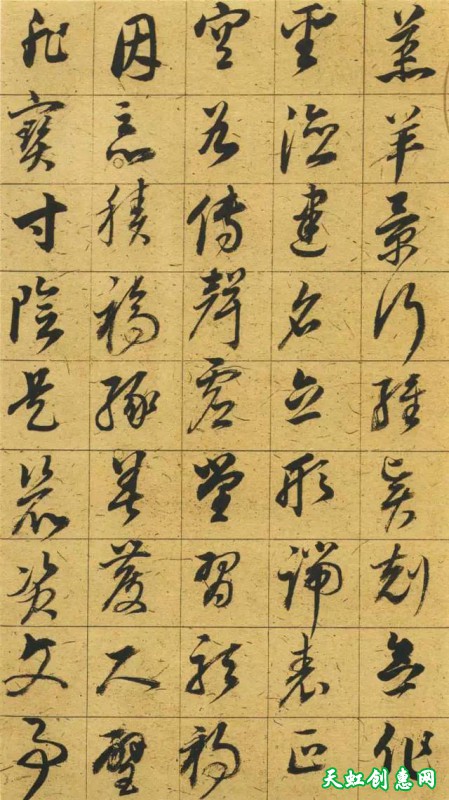 羔羊景行維賢剋念作
聖德建名立形端表正
空谷傳聲虛堂習聽禍
因惡積福緣善慶尺璧
非寶寸陰是競資父事
天虹创惠网